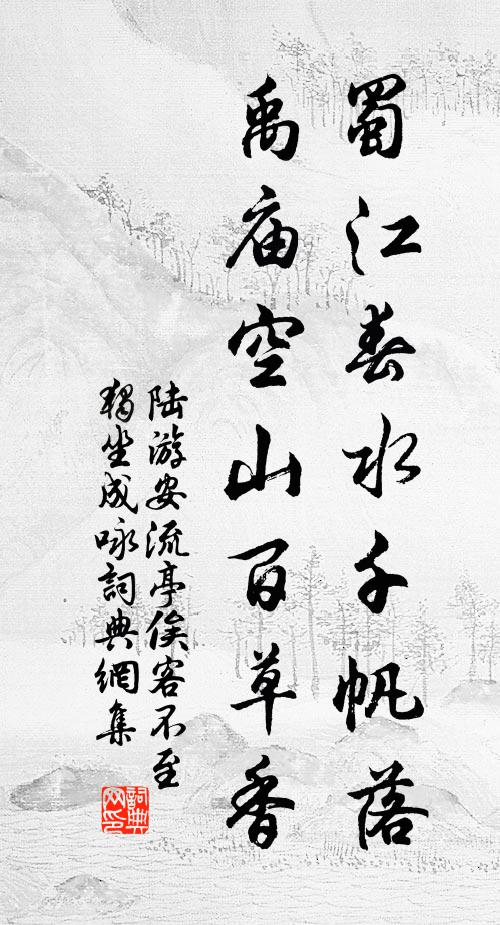 蜀江春水千帆落
禹庙空山百草香
陆游安流亭俟客不至
獨坐成咏詞典網集
詞典
网印